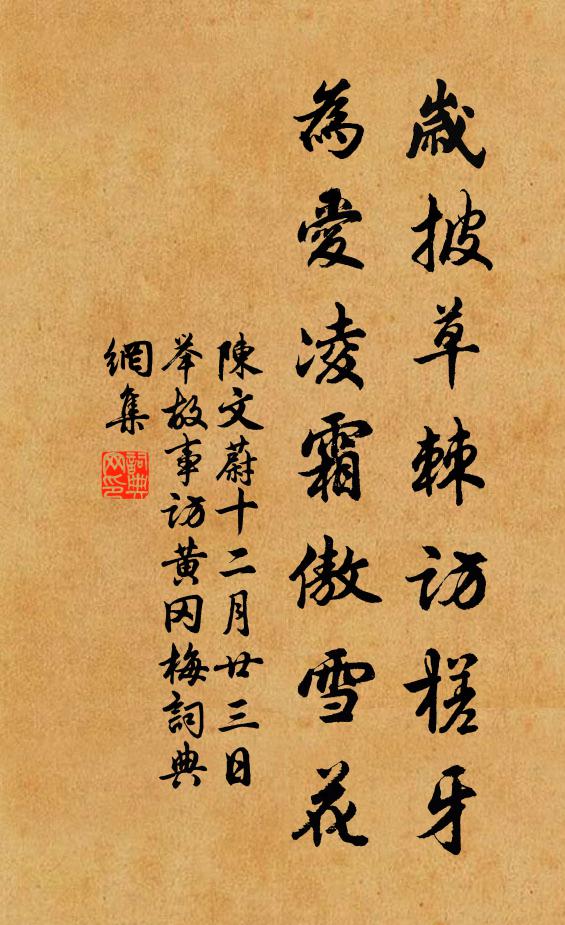 歲披草棘訪槎牙
為愛凌霜傲雪花
陳文蔚十二月廿三日
举故事訪黃冈梅詞典
網集
詞典
網印